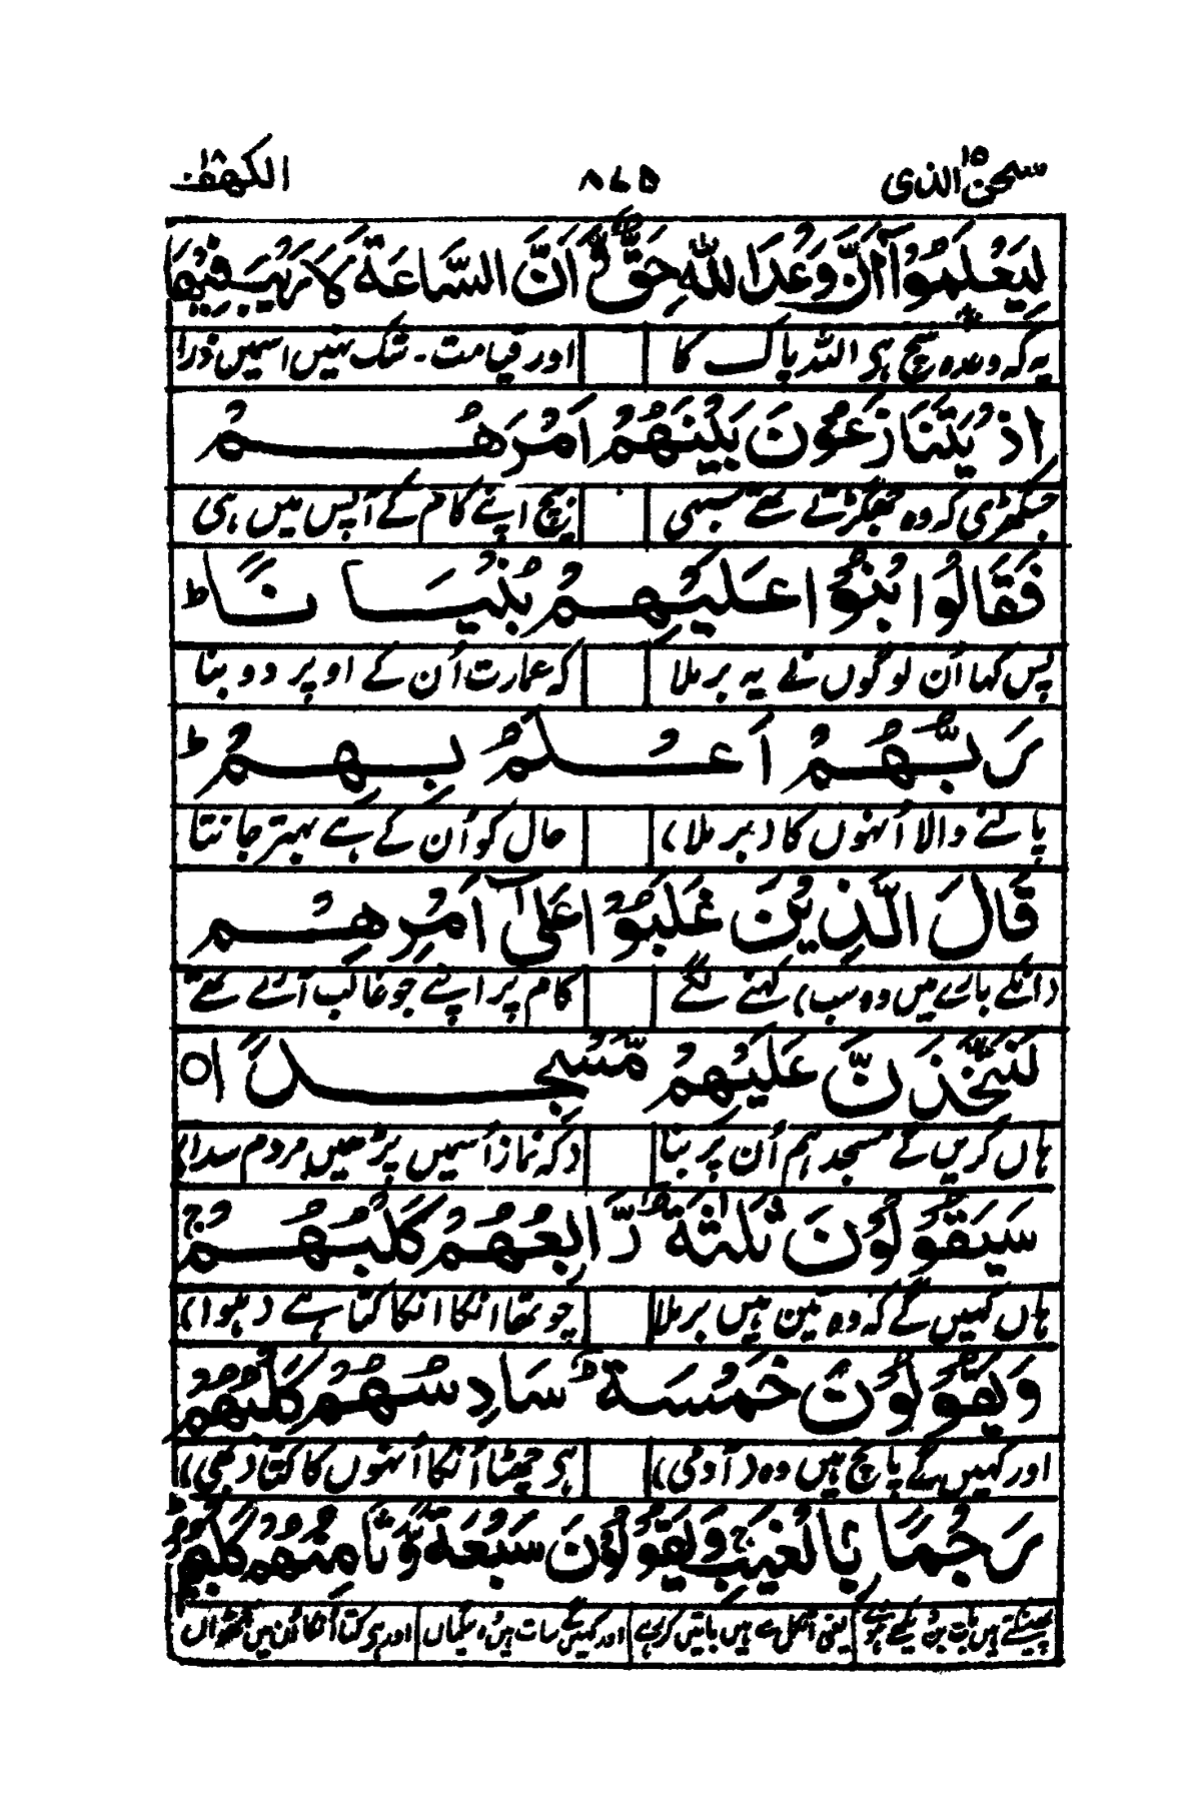 سبحن الذی ۱۵ ۸۷۵ الکهف ۱۸
لِيَعْلَمُوْٓا اَنَّ وَعْدَ اللّٰهِ حَقٌّ وَّ اَنَّ السَّاعَةَ لَا رَيْبَ فِيْهَا
یہ کہ وعدہ سچ ہی اللہ پاک کا اور قیامت۔ شک نہیں اسمیں ذرا
اِذْ يَتَنَازَعُوْنَ بَيْنَهُمْ اَمْرَهُمْ
جھگڑی کہ وہ جھگڑتے تھے سبھی بیچ اپنے کام کے آپس میں ہی
فَقَالُوا ابْنُوْا عَلَيْهِمْ بُنْيَانًا ط
پس کہا اُن لوگوں نے یہ برملا کہ عمارت اُن کے اوپر دو بنا
رَبُّهُمْ اَعْلَمُ بِهِمْ ط
پالنے والا اُنہوں کا (برملا) حال کو اُن کے ہے بہتر جانتا
قَالَ الَّذِيْنَ غَلَبُوْا عَلٰٓى اَمْرِهِمْ
(انکے بارے میں وہ سب) کہنے لگے کام پر اپنے جو غالب آئے تھے
لَنَتَّخِذَنَّ عَلَيْهِمْ مَّسْجِدًا ۝
ہاں کریں گے مسجد ہم اُن پر بنا (کہ نماز اُسمیں پڑھیں مردم سدا)
سَيَقُوْلُوْنَ ثَلٰثَةٌ رَّابِعُهُمْ كَلْبُهُمْ ج
ہاں کہیں گے کہ وہ تین ہیں برملا چوتھا انکا انکا کتا ہے (ہوا)
وَيَقُوْلُوْنَ خَمْسَةٌ سَادِسُهُمْ كَلْبُهُمْ
اور کہیں گے پانچ ہیں وہ (آدمی) ہی چھٹا اُنکا اُنہوں کا کتا (بھی)
رَجْمًا بِالْغَيْبِ ج وَيَقُوْلُوْنَ سَبْعَةٌ وَّثَامِنُهُمْ كَلْبُهُمْ ط
پھینکتے ہیں بات بن دیکھے ہوئے یعنی اٹکل سے ہیں باتیں کر رہے اور کہیں گے سات ہیں وہ بیگماں اور ہی کتا اُنکا اُن میں آٹھواں